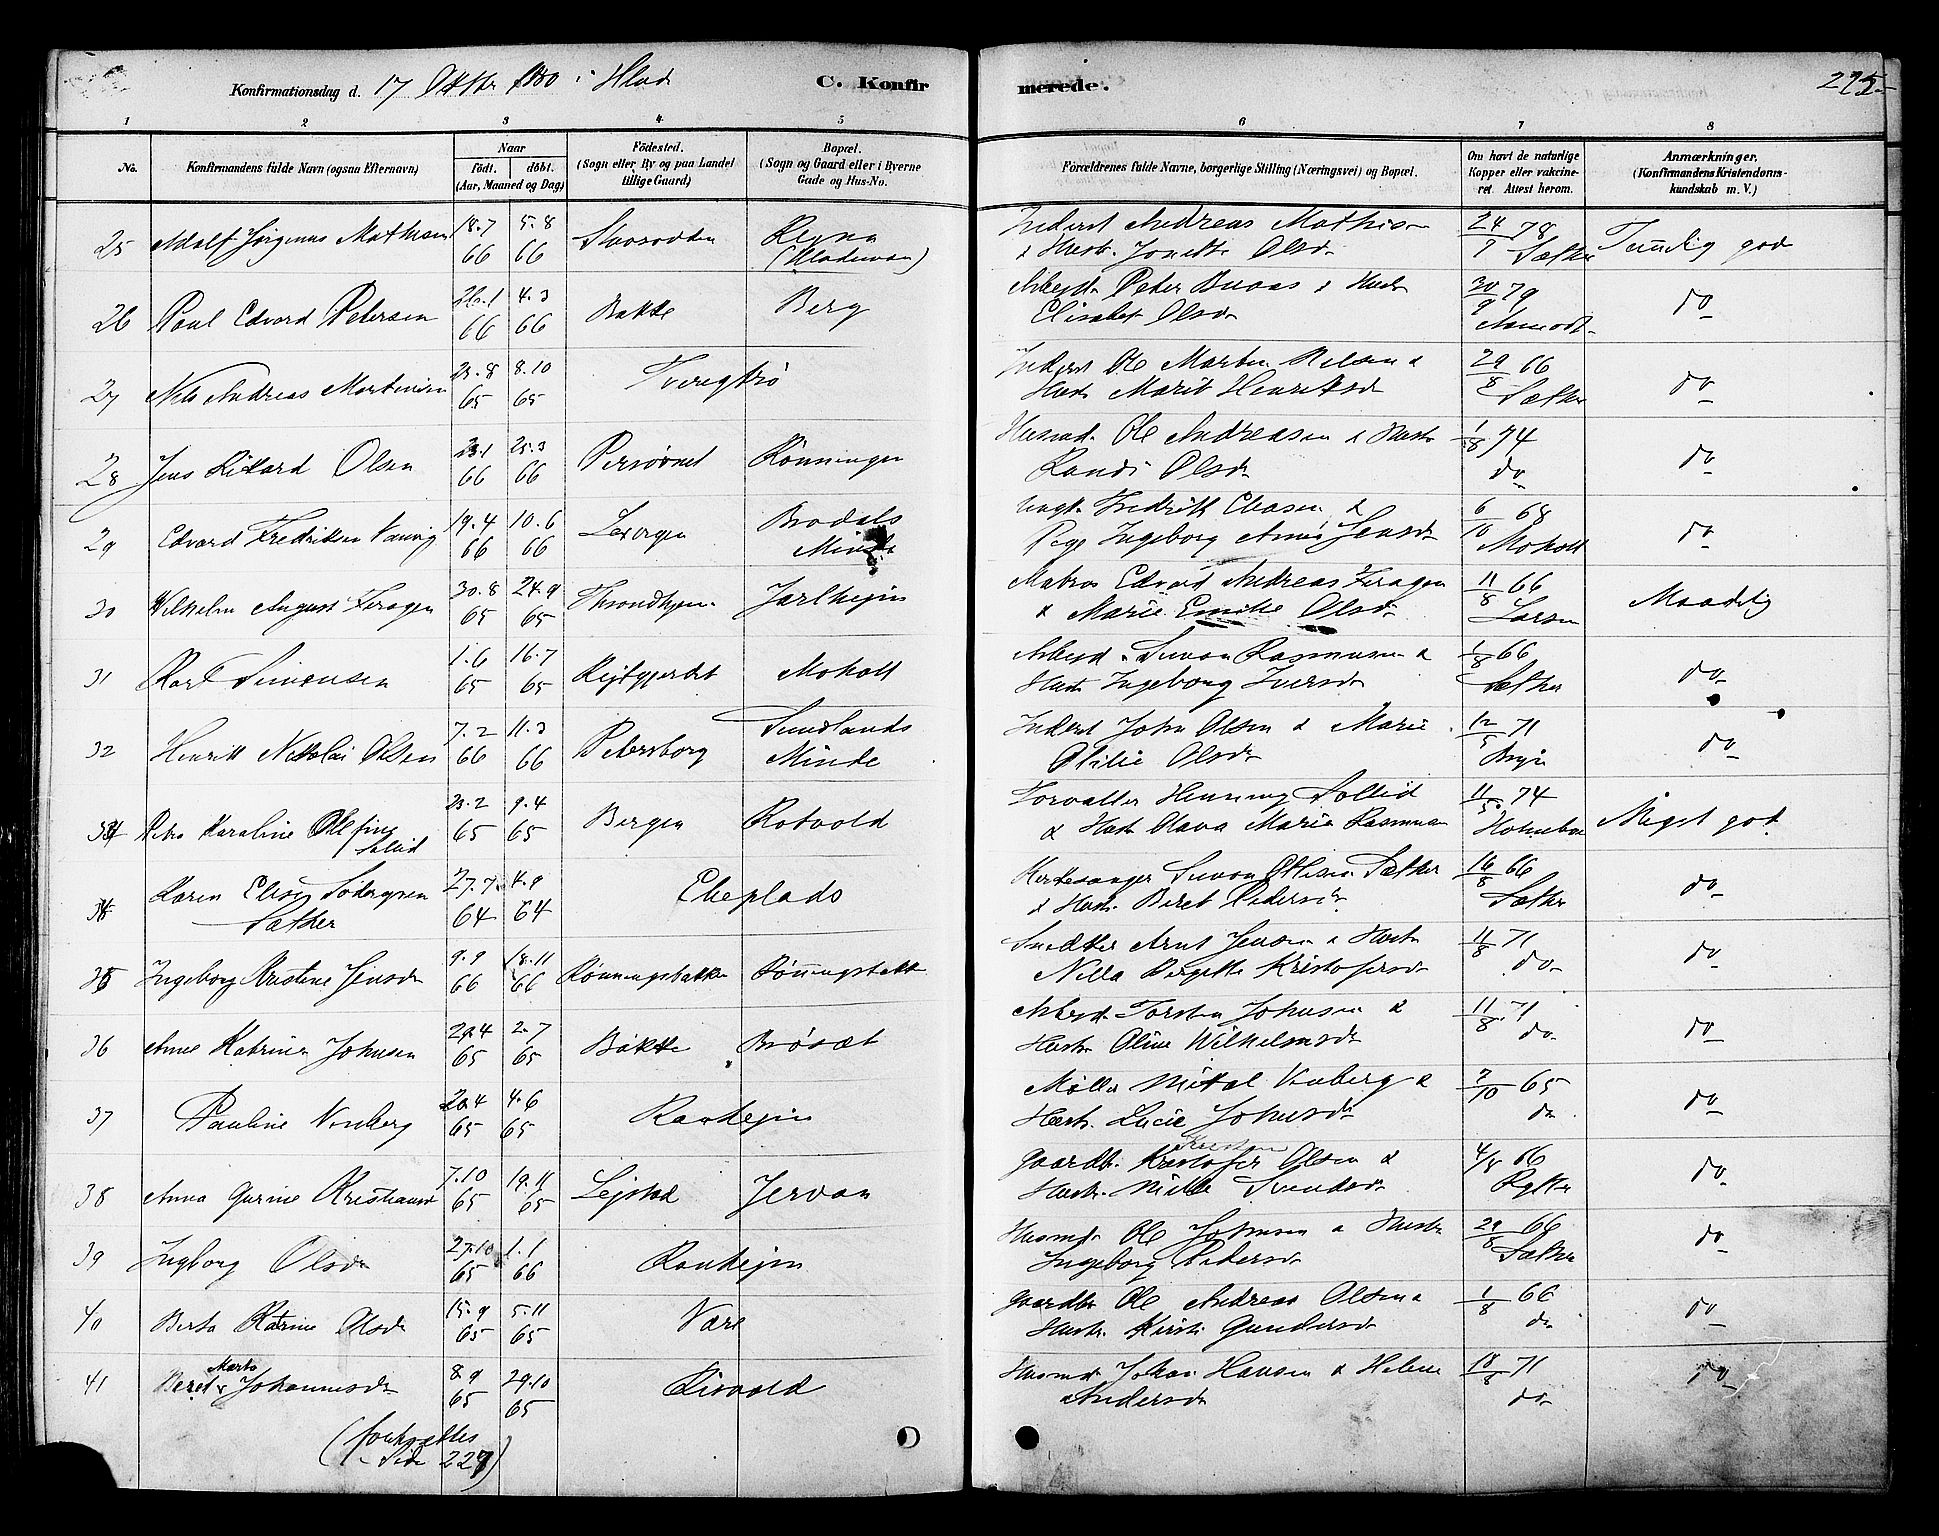 Konfirmationsdag d. 17 Oktbr 1880 i Hlad C. Konfirmerede. 225
1 2 3 4 5 6 7 8
No. Konfirmandens fulde Navn (ogsaa Efternavn) Naar Födt. döbt. (Aar, Maaned og Dag) Födested. (Sogn eller By og paa Landet tillige Gaard) Bopæl. (Sogn og Gaard eller i Byerne Gade og Hus-No. Forældrenes fulde Navne, borgerlige Stilling (Næringsvei) og Bopæl. Om havt de naturlige Kopper eller vakcineret. Attest herom. Anmærkninger. (Konfirmandens Kristendomskundskab m. V.)
25 Adolf Jørginus Mathisen 18.7 66 5.8 66 (Hladem) Inderst Andreas Mathis & Hustr. Olsdr 24/7 78 Sæther Temelig god
26 Paul Edvard Petersen 26.1 66 4.3 66 Bakke Berg Arbeid. Peter Buaas & Hustr Elisabet Olsdr 30/9 79 Aamodt do
27 Nils Andreas Martinsen 65 8.10 65 Inderst Ole Martin Nilsen & Hustr Marit Henriksdr 29/8 66 Sæther do
28 Jens Rikard Olsen 23.1 66 25.3 66 Rønningen Husmd. Ole Andreasen & Hustr Randi Olsdr 1/8 74 do do
29 Edvard Fredriksen 19.4 66 10.6 66 Brodals Minde Ungk. Fredrik & Pige Ingeborg Anna Jensdr 6/10 68 Moholt do
30 Vilhelm August Feragen 30.8 65 24.9 65 Throndhjem Jarlheim Matros Edvard Andreas Feragen & Marie Emilie Olsdr 11/8 66 Larsen Maadelig
31 Karl Simonsen 1.6 65 16.7 65 Moholt Arbeid. Simon Rasmusen & Hustr Ingeborg Iversdr 1/8 66 Sæther do
32 Henrik Nikolai Olsen 7.2 66 11.3 66 Petersborg Sundlands Minde Inderst John Olsen & Marie Otilie Olsdr 12/5 71 do
33 Karoline Olefine 23.2 65 9.4 65 Bergen Rotvold Forvalter Henning Sollid & Hustr Olava Maria 11/5 74 Meget god
34 Karen Elise Sodergren Sæther 27.7 64 4.9 64 Eheplads Kirkesanger Simon Sæther & Hustr. Beret Pedersdr 16/8 66 Sæther do
35 Ingeborg Kristine Jensdr 9.9 66 18.11 66 Rønningsbakken Rønningsbakk Snedker Arnt Jensen & Hustr Nilla Birgitte Kristofersdr 11/8 71 do do
36 Anne Katrine Johnsen 65 2.7 65 Bakke Brøsæt Arbeid. Torsten Johnsen & Hustr Oline Wilhelmsdr 11/8 71 do do
37 Pauline Venberg 20.4 65 4.6 65 Ranheim Møller Mikal Venberg & Hustr. Lucie Johnsdr 7/10 65 do do
38 Anna Gurine Kristiansd 7.10 65 19.11 65 Lejstad Jervan Gaardb. Kristofer Olsen & Hustr. 4/8 66 do
39 Ingborg Olsdr 27.10 65 1.1 66 Ranheim Husmd. Ole Johnsen & Hustr Ingeborg Pedersdr 29/8 66 Sæther do
40 Berta Katrine Olsdr 15.9 65 5.11 65 Være Gaardbr Ole Andreas Olsen & Hustr. Kirsti Gundersdr 1/8 66 do do
41 Beret Marta Johannesdr 8.9 65 29.10 65 Risvold Husmd. Johan Hansen & Helene Andersdr 18/8 71 do do
(fortsættes Side 227)